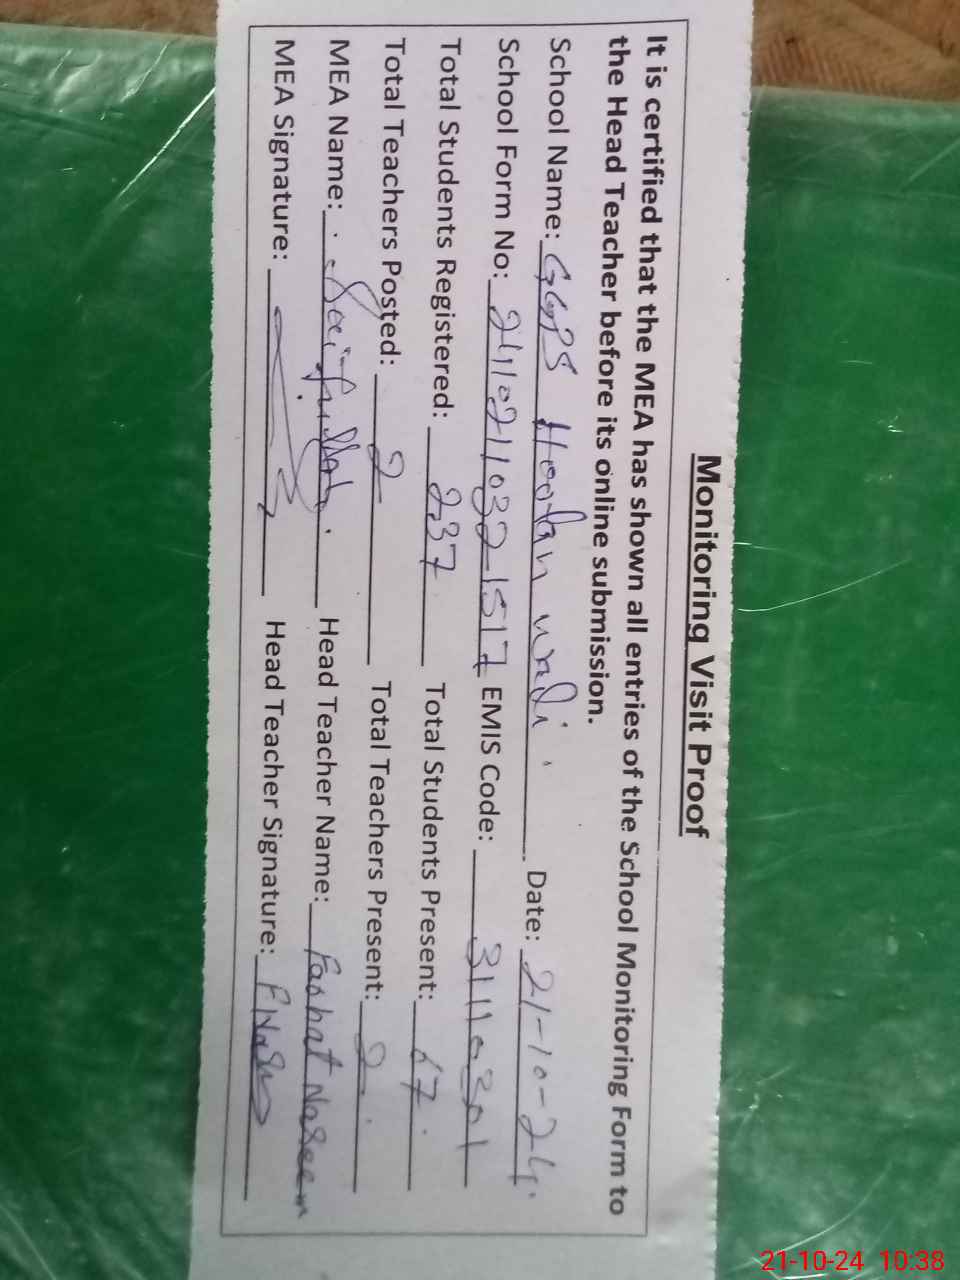 Monitoring Visit Proof
It is certified that the MEA has shown all entries of the School Monitoring Form to
the Head Teacher before its online submission.
School Name: GGPS Hootan Date: 21-10-24
School Form No: 2411021103021517 EMIS Code:
Total Students Registered: 237 Total Students Present: 67
Total Teachers Posted: 2 Total Teachers Present: 2
MEA Name: Saifullah Head Teacher Name: Farhat Naseem
MEA Signature: Head Teacher Signature:
21-10-24 10:38